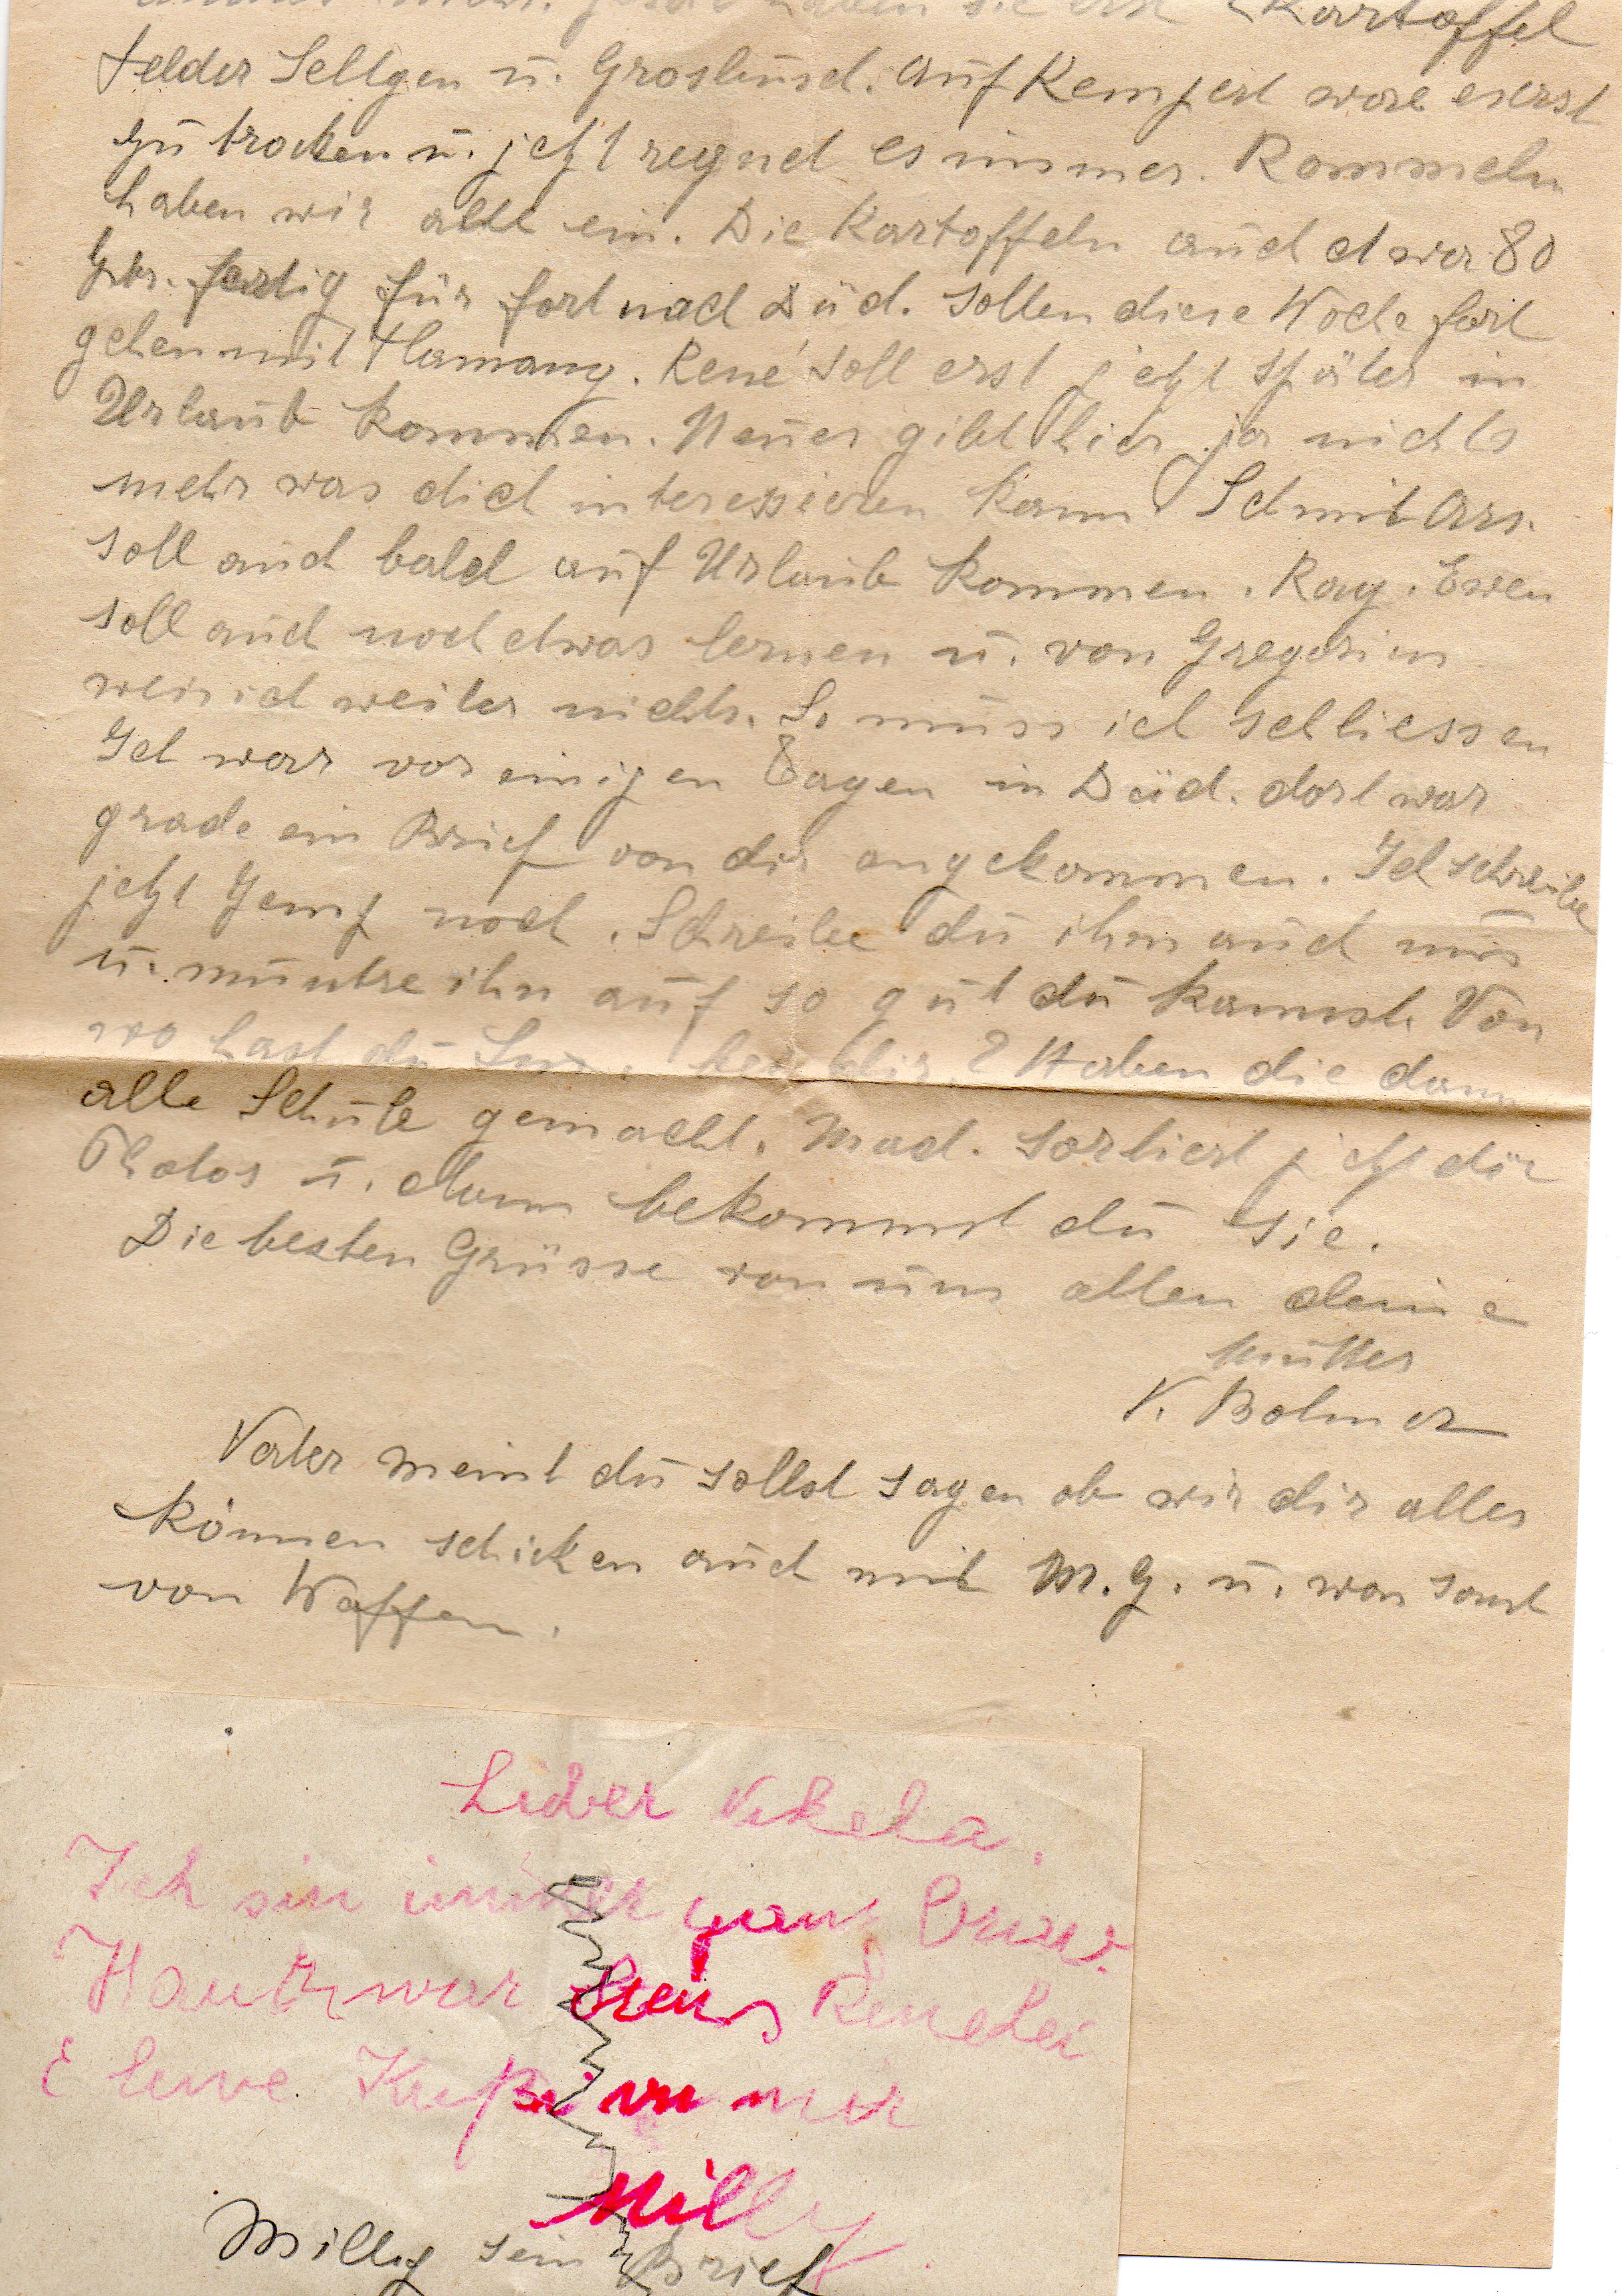 Kartoffel
Felder Sellgen u. Grosbusch. Auf Kempert ware es erst
zu trocken u. jetzt regnet es immer. Rommeln
haben wir alle ein. Die Kartoffeln auch etwa 80
Ztr. fertig für fort nach Düd. sollen diese Woche fort
gehen mit Flamang. René soll erst jetzt später in
Urlaub kommen. Neues gibt hier ja nichts
mehr was dich interessieren kann Schmit Ars.
soll auch bald auf Urlaub kommen. Ray. Ewen
soll auch noch etwas lernen u. von Gregorius
weis ich weiter nichts. So muss ich schliessen
Ich war vor einigen Tagen in Düd. dort war
grade ein Brief von dir angekommen. Ich schreibe
jetzt Jemp noch. Schreibe du ihm auch nur
u. muntre ihn auf so gut du kannst. Von
wo hast du bei dir? Haben die dann
alle Schule gemacht. Mad. sortiert jetzt die
Photos u. dann bekommst du sie.
Die besten Grüsse von uns allen deine
Mutter
V. Bolmer
Vater meint du sollst sagen ob wir dir alles
können schicken auch mit M.G. u. was sonst
von Waffen.
Lieber Nikela.
Ich sin immer ganz braw.
Haut war Renelei
E lewe Kuß vu mir
Milly
Milly sein Brief